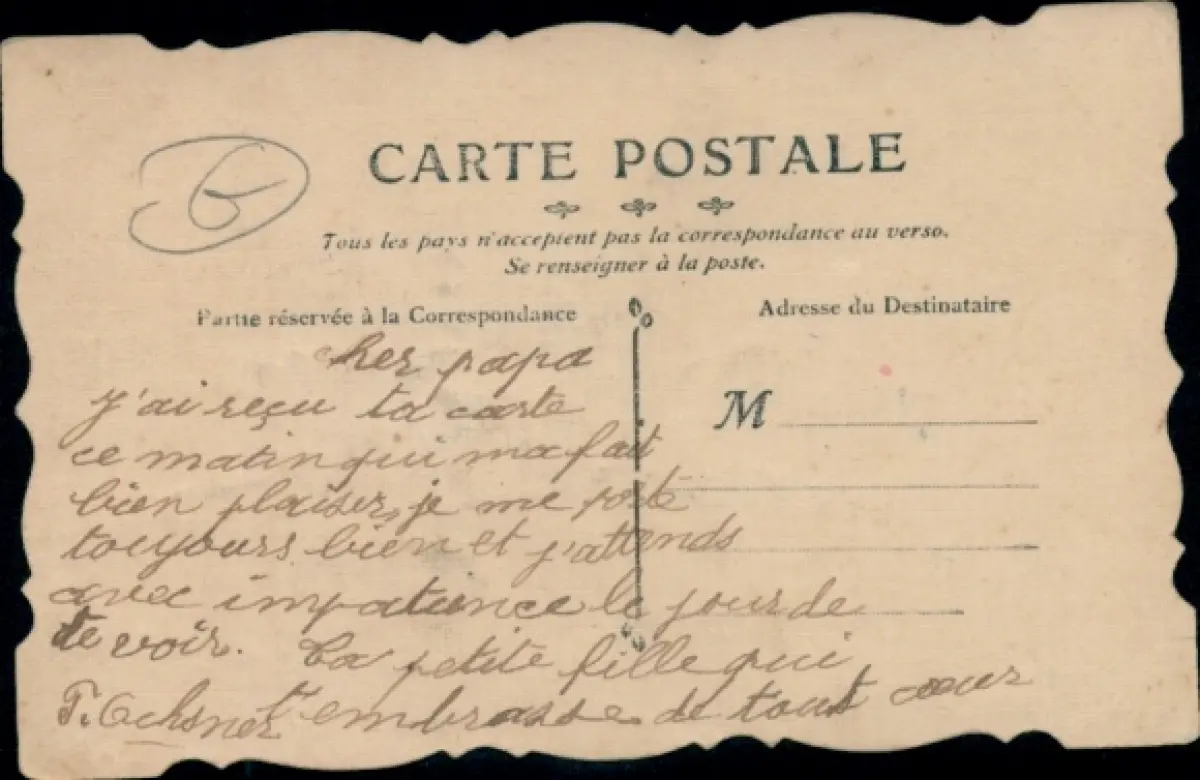 6
CARTE POSTALE
Tous les pays n'acceptent pas la correspondance au verso.
Se renseigner à la poste.
Partie réservée à la Correspondance
Adresse du Destinataire
M
cher papa
J'ai reçu ta carte
ce matin qui ma fait
bien plaiser, je me porte
toujours bien et j'attends
avec impatience le jour de
te voir. Ta petite fille qui
t'embrasse de tout cœur
T. Ochsner